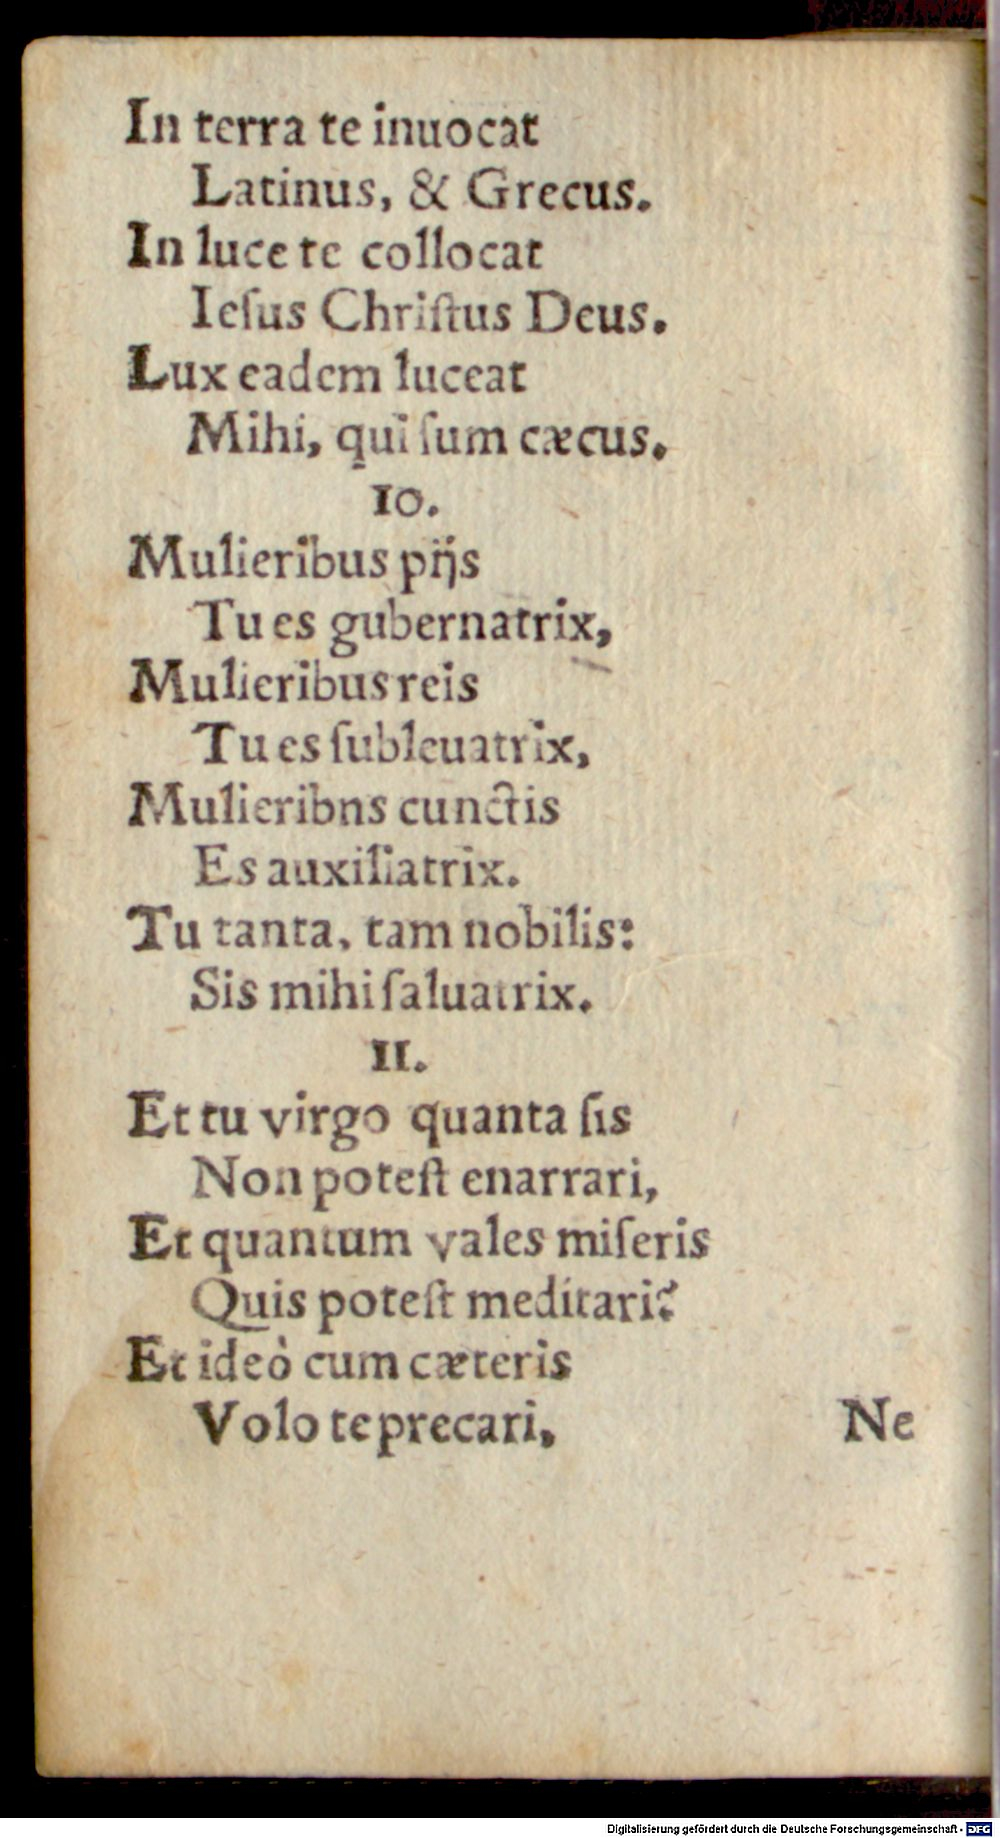 In terra te inuocat
Latinus, & Grecus.
In luce te collocat
Ieſus Chriſtus Deus.
Lux eadem luceat
Mihi, qui ſum cæcus.
10.
Mulieribus pijs
Tu es gubernatrix,
Mulieribus reis
Tu es ſubleuatrix,
Mulieribns cunctis
Es auxiliatrix.
Tu tanta, tam nobilis:
Sis mihi ſaluatrix.
11.
Et tu virgo quanta ſis
Non poteſt enarrari,
Et quantum vales miſeris
Quis poteſt meditari?
Et ideò cum cæteris
Volo te precari,
Ne
Digitalisierung gefördert durch die Deutsche Forschungsgemeinschaft - DFG